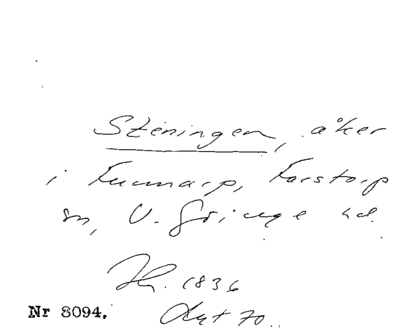 Steningen, åker
i Funnarp, Farstorp
sn, V. Göinge hd.
1836
Akt 70.
Nr 8094.